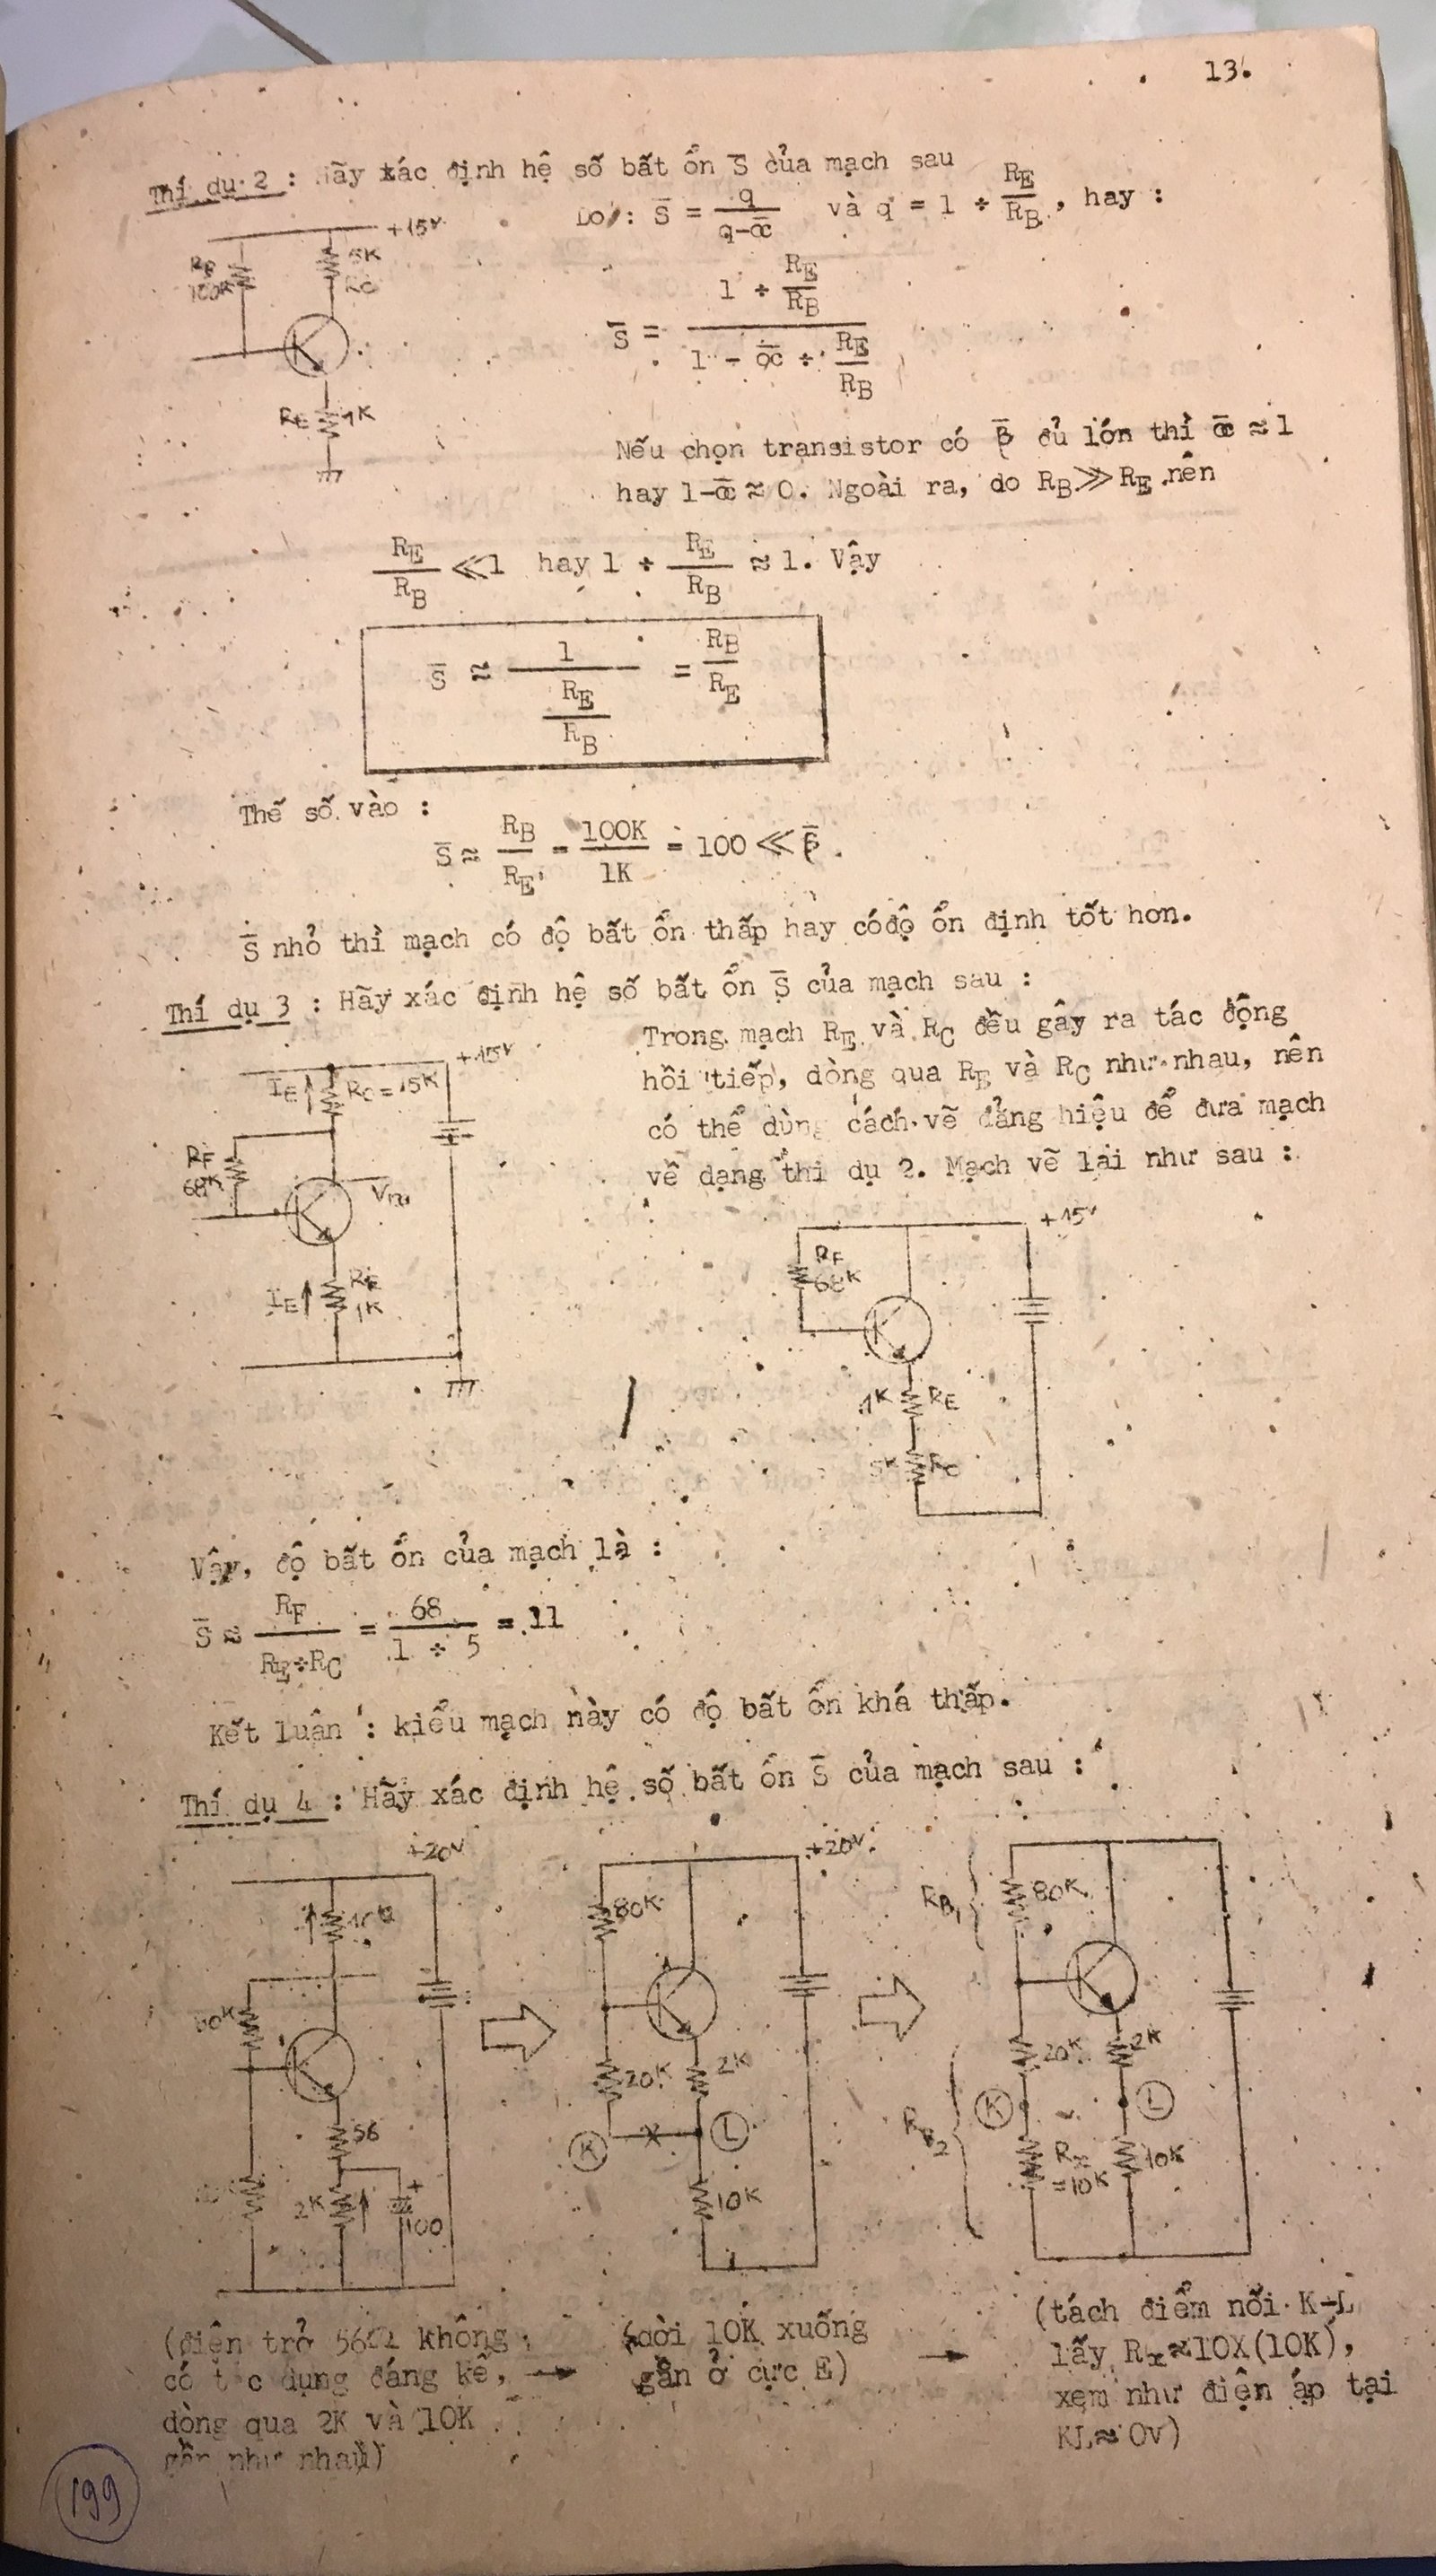 13.
Thí dụ 2 : Hãy xác định hệ số bất ổn S̄ của mạch sau
Do : S̄ = q / (q-α̅) và q = 1 + R_E / R_B, hay :
+15V
R_B
100K
5K
R_C
R_E 1K
S̄ = (1 + R_E / R_B) / (1 - α̅ + R_E / R_B)
Nếu chọn transistor có β̅ đủ lớn thì α̅ ≈ 1
hay 1-α̅ ≈ 0. Ngoài ra, do R_B ≫ R_E nên
R_E / R_B ≪ 1 hay 1 + R_E / R_B ≈ 1. Vậy
S̄ ≈ 1 / (R_E / R_B) = R_B / R_E
Thế số vào :
S̄ ≈ R_B / R_E = 100K / 1K = 100 ≪ β̅.
S̄ nhỏ thì mạch có độ bất ổn thấp hay cóđộ ổn định tốt hơn.
Thí dụ 3 : Hãy xác định hệ số bất ổn S̄ của mạch sau :
Trong mạch R_E và R_C đều gây ra tác động
hồi tiếp, dòng qua R_E và R_C như nhau, nên
có thể dùng cách vẽ đẳng hiệu để đưa mạch
về dạng thi dụ 2. Mạch vẽ lại như sau :
+15V
I_E ↑ R_C = 15K
R_F
68K
I_E ↑ R_E
1K
+15V
R_F
68K
1K R_E
5K R_C
Vậy, độ bất ổn của mạch là :
S̄ ≈ R_F / (R_E + R_C) = 68 / (1 + 5) = 11
Kết luận : kiểu mạch này có độ bất ổn khá thấp.
Thí dụ 4 : Hãy xác định hệ số bất ổn S̄ của mạch sau :
+20V
80K
56
2K
+
100
+20V
80K
20K
2K
K
L
10K
R_B1
80K
20K
2K
K
L
R_B2
R_x
=10K
10K
(điện trở 56Ω không
có tác dụng đáng kể, →
dòng qua 2K và 10K
gần như nhau)
(dời 10K xuống
gần ở cực E) →
(tách điểm nối K-L
lấy R_x≈10X(10K),
xem như điện áp tại
KL≈ 0V)
199